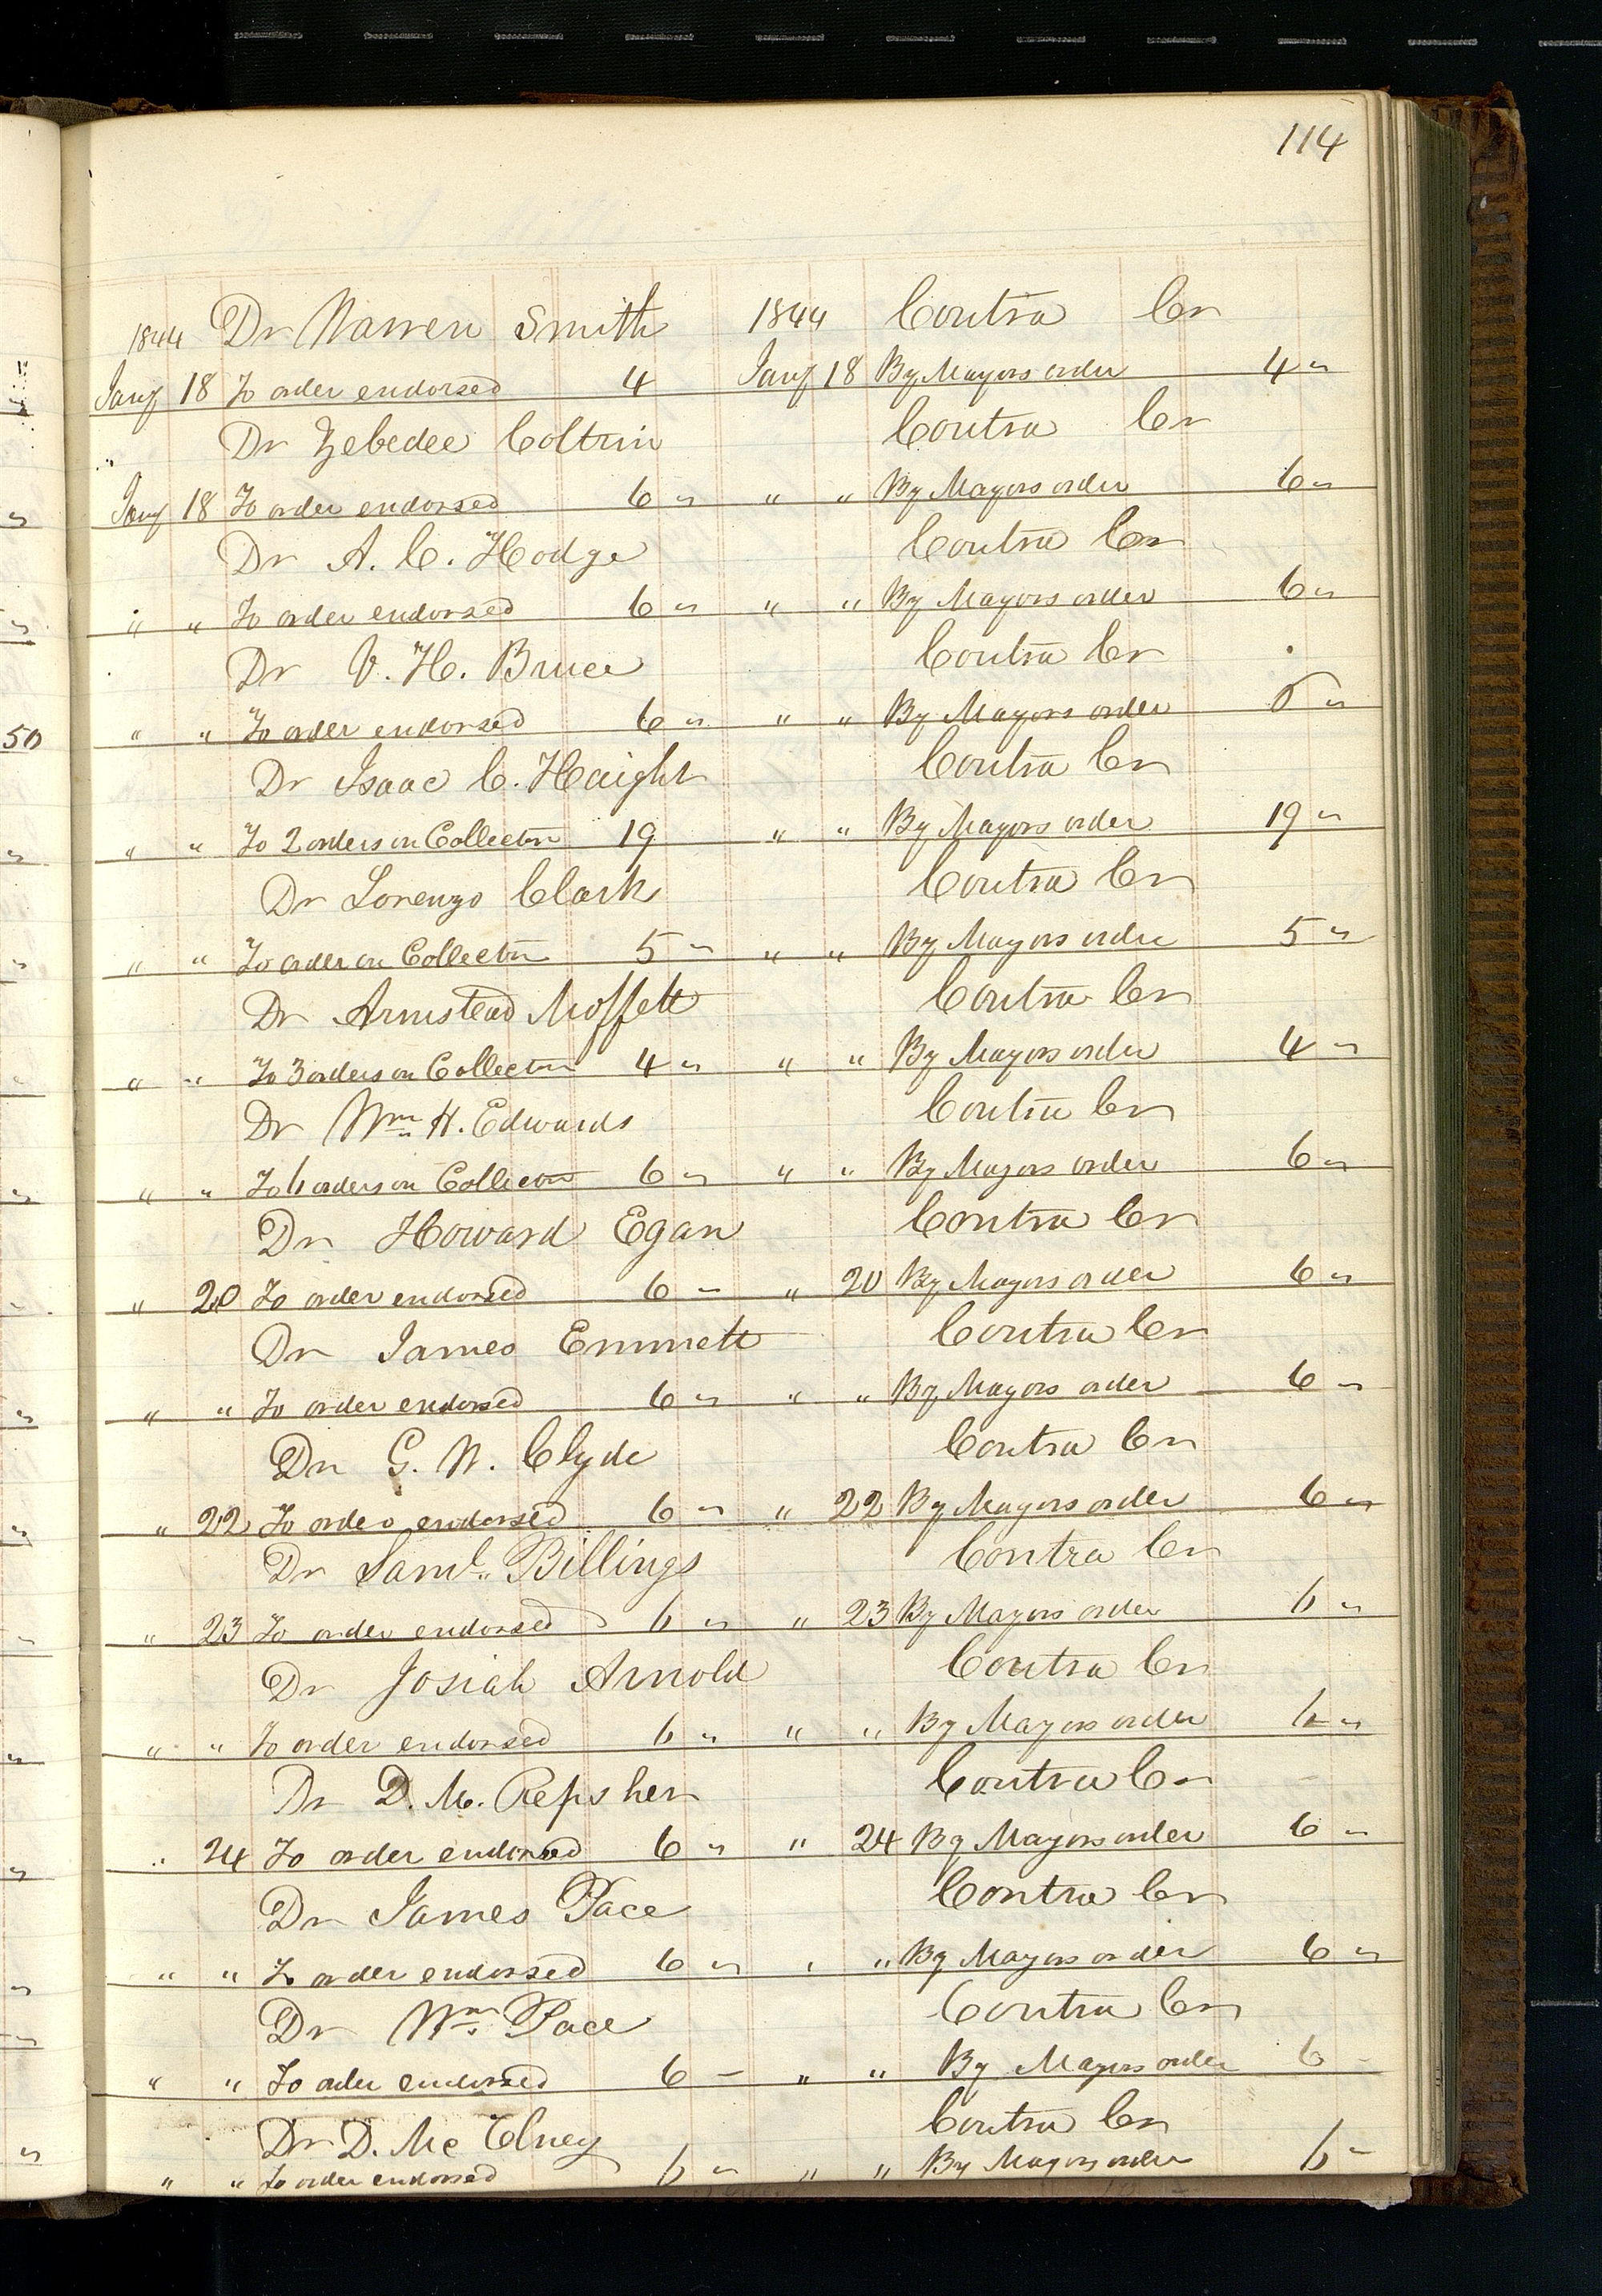 114
1844 Dr Warren Smith 1844 Contra Cr
Jany 18 To order endorsed 4 Jany 18 By Mayors order 4 "
Dr Zebedee Coltrin Contra Cr
Jany 18 To order endorsed 6 " " " By Mayors order 6 "
Dr A. C. Hodge Contra Cr
" " To order endorsed 6 " " " By Mayors order 6 "
Dr V. H. Bruce Contra Cr
50
" " To order endorsed 6 " " " By Mayors order 6 "
Dr Isaac C. Haight Contra Cr
" " To 2 orders on Collector 19 " " By Mayors order 19 "
Dr Lorenzo Clark Contra Cr
" " To order on Collector 5 " " " By Mayors order 5 "
Dr Armstead Moffett Contra Cr
" " To 3 orders on Collector 4 " " " By Mayors order 4 "
Dr Wm H. Edwards Contra Cr
" " To 6 orders on Collector 6 " " " By Mayors order 6 "
Dr Howard Egan Contra Cr
" 20 To order endorsed 6 - " 20 By Mayors order 6 "
Dr James Emmett Contra Cr
" " To order endorsed 6 " " " By Mayors order 6 "
Dr G. W. Clyde Contra Cr
" 22 To order endorsed 6 " " 22 By Mayors order 6 "
Dr Saml. Billings Contra Cr
" 23 To order endorsed 6 " " 23 By Mayors order 6 "
Dr Josiah Arnold Contra Cr
" " To order endorsed 6 " " " By Mayors order 6 "
Dr D. M. Repsher Contra Cr
" 24 To order endorsed 6 " " 24 By Mayors order 6 "
Dr James Pace Contra Cr
" " To order endorsed 6 " " " By Mayors order 6 "
Dr Wm Pace Contra Cr
" " To order endorsed 6 - " " By Mayors order 6 -
Dr D. Mc Elney Contra Cr
" " To order endorsed 6 " " " By Mayors order 6 -